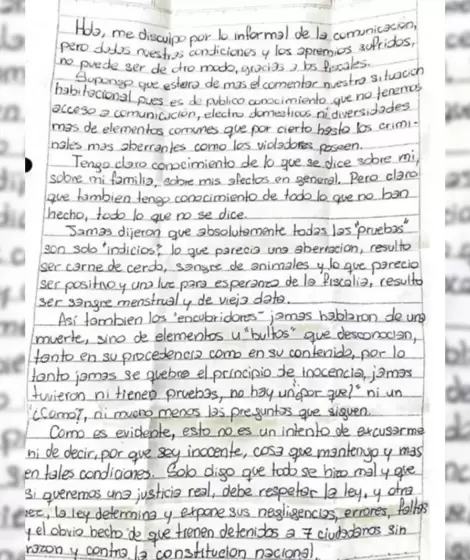 Hola, me disculpo por lo informal de la comunicación,
pero dadas nuestras condiciones y los apremios sufridos,
no puede ser de otro modo, gracias a los fiscales.
Supongo que estara de mas el comentar nuestra situacion
habitacional pues es de publico conocimiento que no tenemos
acceso a comunicación, electro domesticos ni diversidades
mas de elementos comunes que por cierto hasta los crimi-
nales mas aberrantes como los violadores poseen.
Tengo claro conocimiento de lo que se dice sobre mi,
sobre mi familia, sobre mis afectos en general. Pero claro
que tambien tengo conocimiento de todo lo que no han
hecho, todo lo que no se dice.
Jamas dijeron que absolutamente todas las "pruebas"
son solo "indicios", lo que parecia una aberracion, resulto
ser carne de cerdo, sangre de animales y lo que parecio
ser positivo y una luz para esperanza de la fiscalia, resulto
ser sangre menstrual y de vieja data.
Asi tambien los "encubridores" jamas hablaron de una
muerte, sino de elementos u "bultos" que desconocian,
tanto en su procedencia como en su contenido, por lo
tanto jamas se quebro el principio de inocencia, jamas
tuvieron ni tienen pruebas, no hay un ¿por que? ni un
¿Como?, ni mucho menos las preguntas que siguen.
Como es evidente, esto no es un intento de excusarme
ni de decir, por que soy inocente, cosa que mantengo y mas
en tales condiciones. Solo digo que todo se hizo mal y que
si queremos una justicia real, debe respetar la ley, y otra
vez, la ley determina y expone sus negligencias, errores, faltas
y el obvio hecho de que tienen detenidos a 7 ciudadanos sin
razon y contra la constitucion nacional.